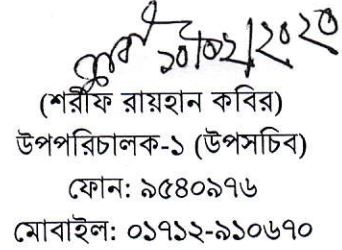 ১০/০২/২০২০
(শরীফ রায়হান কবির)
উপপরিচালক-১ (উপসচিব)
ফোন: ৯৫৪০৯৭৬
মোবাইল: ০১৭১২-৯১০৬৭০